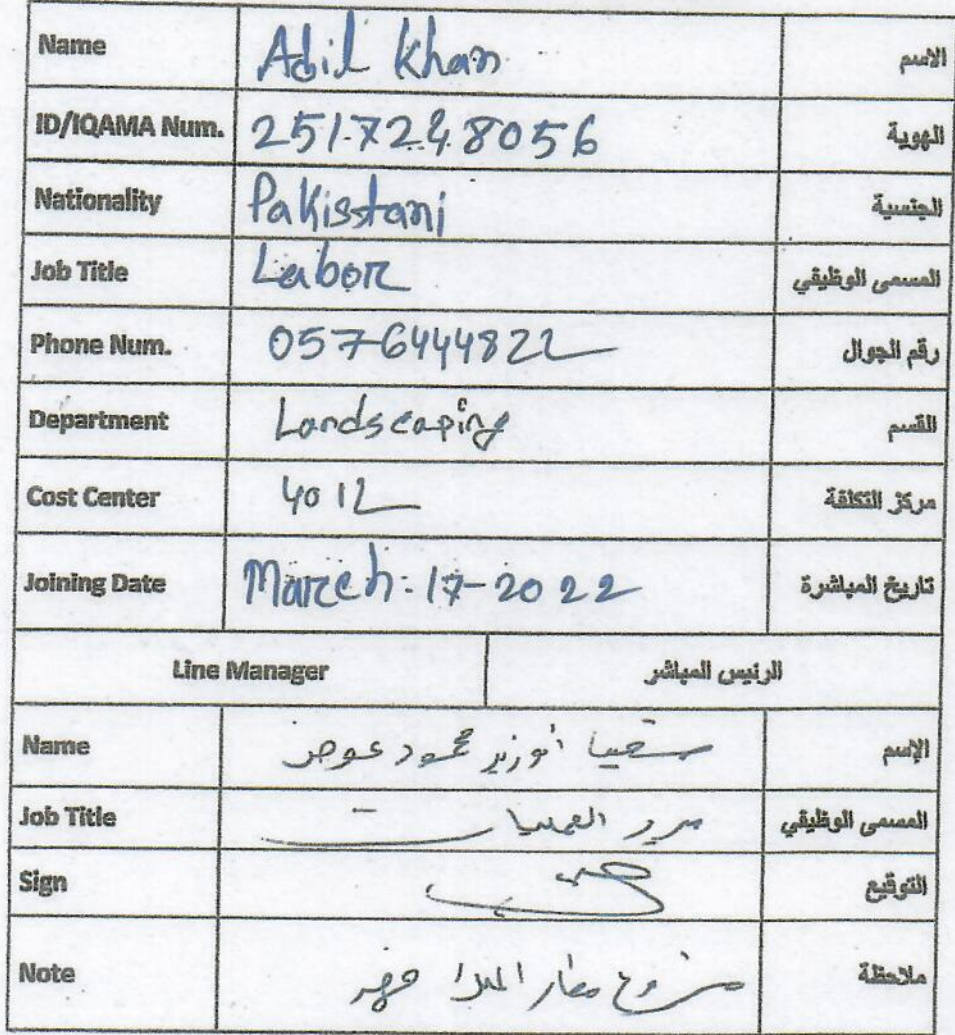 Name Adil Khan الاسم
ID/IQAMA Num. 2517248056 الهوية
Nationality Pakisstani الجنسية
Job Title Labor المسمى الوظيفي
Phone Num. 0576444822 رقم الجوال
Department Landscaping القسم
Cost Center 4012 مركز التكلفة
Joining Date March-17-2022 تاريخ المباشرة
Line Manager الرئيس المباشر
Name محمود عوض الإسم
Job Title مدير العمليات المسمى الوظيفي
Sign التوقيع
Note مشروع مطار الملك فهد ملاحظة